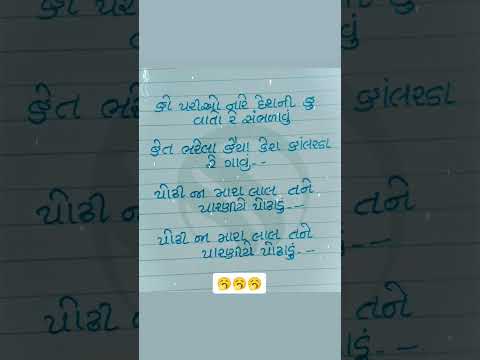 હો પરીઓ નારે દેશની હુ
વાતો રે સંભળાવું
હેત ભરેલા હૈયા કેરા હાંલરડા
રે ગાવું--
પોઢી જા મારા લાલ તને
પારણીયે પોઢાડું--
પોઢી જા મારા લાલ તને
પારણીયે પોઢાડું--